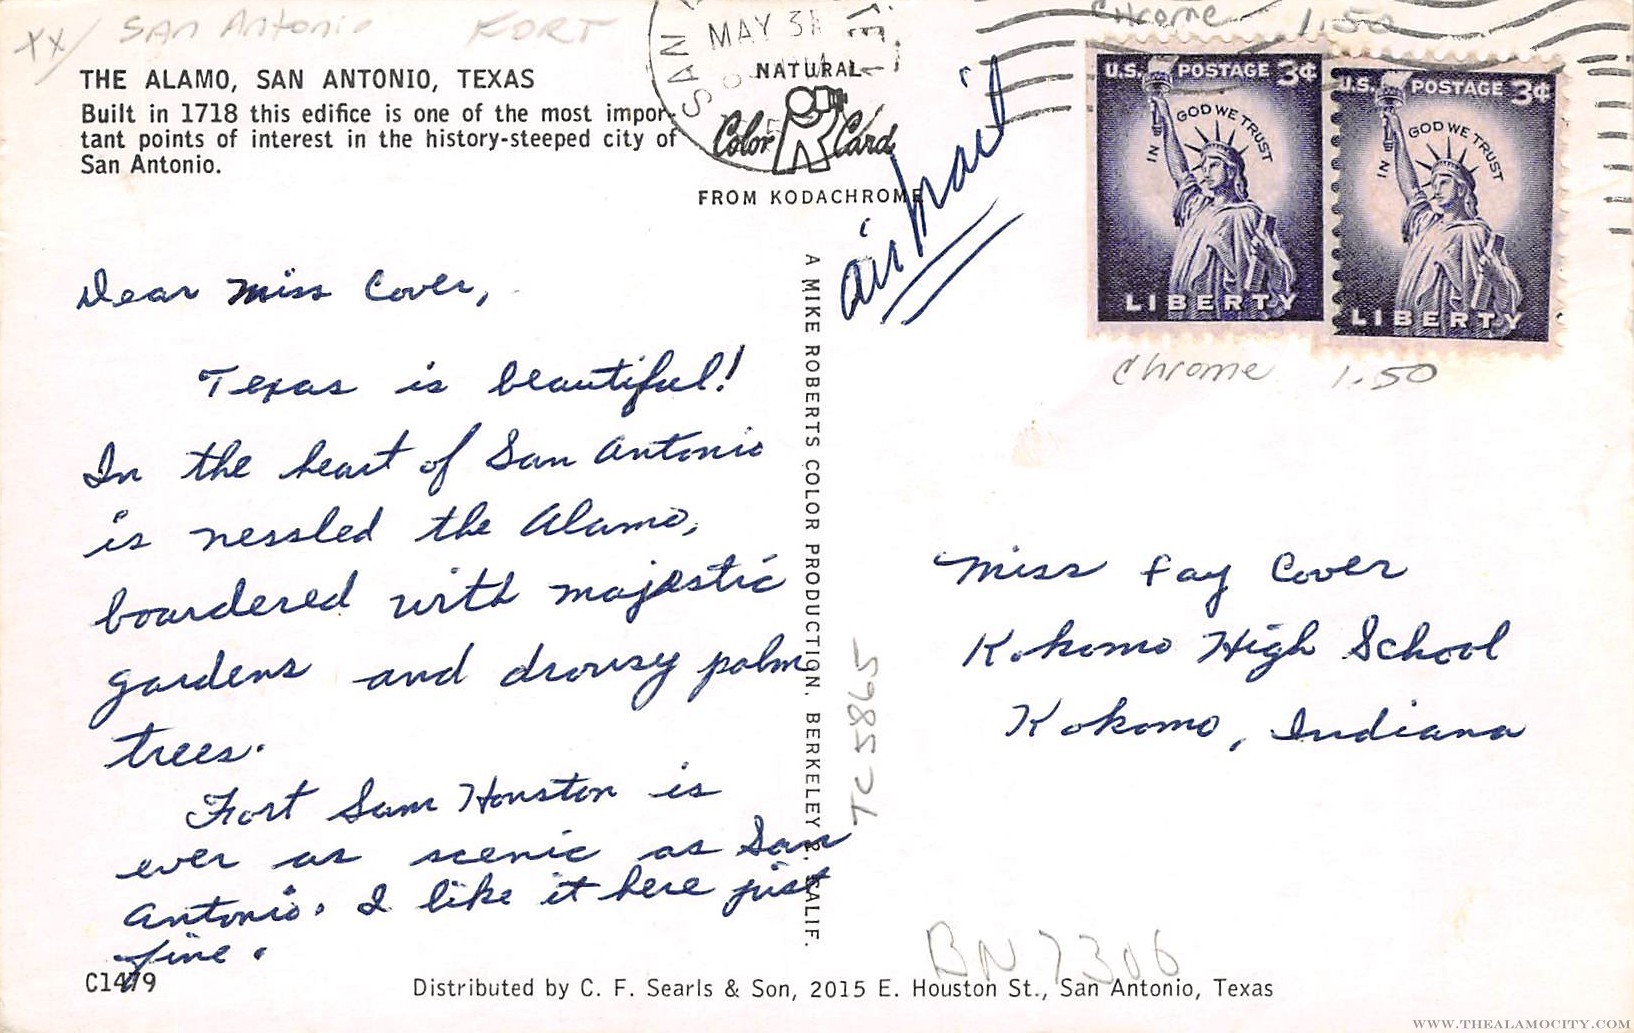 xx/ San Antonio KORT
THE ALAMO, SAN ANTONIO, TEXAS
Built in 1718 this edifice is one of the most impor-
tant points of interest in the history-steeped city of
San Antonio.
SAN
MAY 31
NATURAL
Color Card
FROM KODACHROME
air mail
Chrome 1.50
U.S. POSTAGE 3¢
IN GOD WE TRUST
LIBERTY
U.S. POSTAGE 3¢
IN GOD WE TRUST
LIBERTY
Chrome 1.50
Dear Miss Cover,
Texas is beautiful!
In the heart of San Antonio
is nessled the Alamo,
boardered with majestic
gardens and drowsy palm
trees.
Fort Sam Houston is
ever as scenic as San
Antonio. I like it here just
fine.
A MIKE ROBERTS COLOR PRODUCTION. BERKELEY 2, CALIF.
TC 5865
Miss Fay Cover
Kokomo High School
Kokomo, Indiana
BN 7306
C1479
Distributed by C. F. Searls & Son, 2015 E. Houston St., San Antonio, Texas
WWW.THEALAMOCITY.COM